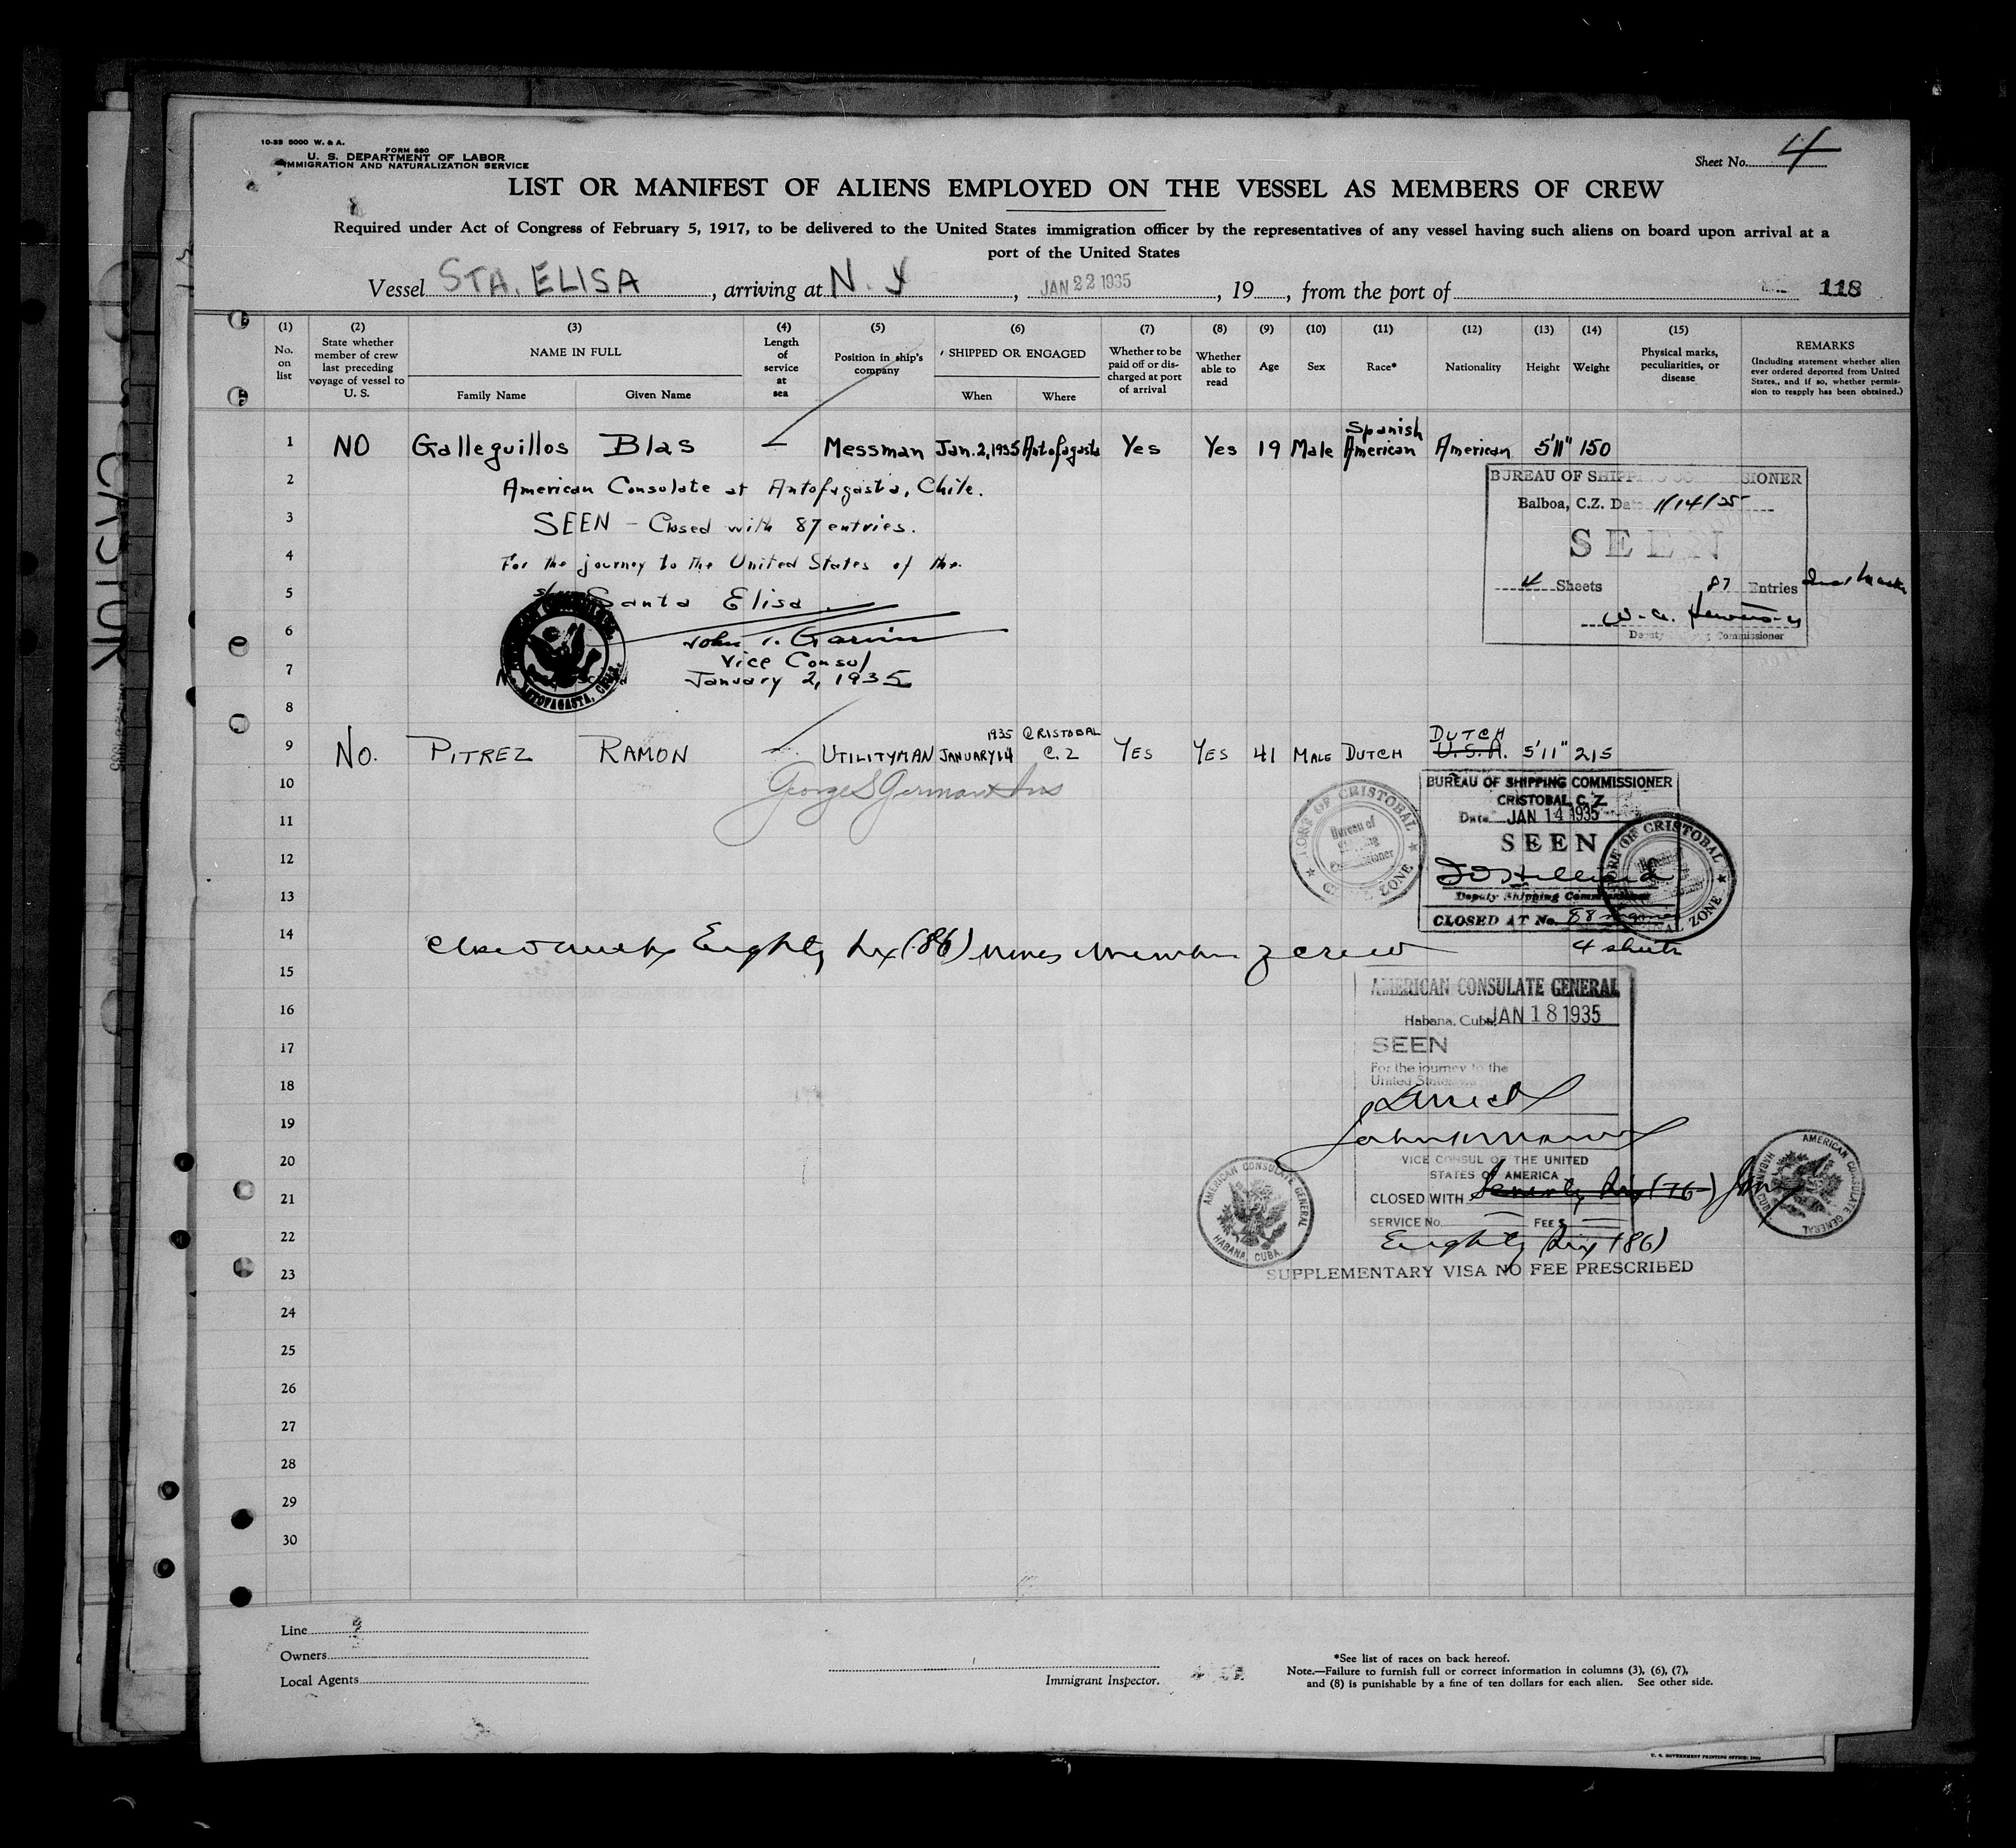 10-33 5000 W. & A.
FORM 680
U. S. DEPARTMENT OF LABOR
IMMIGRATION AND NATURALIZATION SERVICE
Sheet No. 4
LIST OR MANIFEST OF ALIENS EMPLOYED ON THE VESSEL AS MEMBERS OF CREW
Required under Act of Congress of February 5, 1917, to be delivered to the United States immigration officer by the representatives of any vessel having such aliens on board upon arrival at a
port of the United States
Vessel STA. ELISA, arriving at N. Y, JAN 22 1935, 19, from the port of 118
(1) No. on list
(2) State whether member of crew last preceding voyage of vessel to U. S.
(3) NAME IN FULL
Family Name Given Name
(4) Length of service at sea
(5) Position in ship's company
(6) SHIPPED OR ENGAGED
When Where
(7) Whether to be paid off or discharged at port of arrival
(8) Whether able to read
(9) Age
(10) Sex
(11) Race*
(12) Nationality
(13) Height
(14) Weight
(15) Physical marks, peculiarities, or disease
REMARKS
(Including statement whether alien ever ordered deported from United States, and if so, whether permission to reapply has been obtained.)
1 NO Galleguillos Blas — Messman Jan. 2, 1935 Antofagasta Yes Yes 19 Male Spanish American American 5'11" 150
2 American Consulate at Antofagasta, Chile.
3 SEEN - Closed with 87 entries.
4 For the journey to the United States of the
5 Santa Elisa
6 John T. Garvin
7 Vice Consul
January 2, 1935
ANTOFAGASTA, CHILE
BUREAU OF SHIPPING COMMISSIONER
Balboa, C.Z. Date 1/14/35
SEEN
4 Sheets 87 Entries
Deputy Shipping Commissioner
8
9 No. PITREZ RAMON — UTILITYMAN JANUARY 14 1935 CRISTOBAL C.Z YES YES 41 MALE DUTCH DUTCH U.S.A. 5'11" 215
10
11
12
13
PORT OF CRISTOBAL
Bureau of Shipping Commissioner
CANAL ZONE
BUREAU OF SHIPPING COMMISSIONER
CRISTOBAL, C. Z.
Date JAN 14 1935
SEEN
Deputy Shipping Commissioner
CLOSED AT No. 88
4 sheets
PORT OF CRISTOBAL
CANAL ZONE
14 Eighty Six (86) crew
15
16
17
18
19
20
21
22
23
24
25
26
27
28
29
30
AMERICAN CONSULATE GENERAL
Habana, Cuba JAN 18 1935
SEEN
For the journey to the
United States
VICE CONSUL OF THE UNITED
STATES OF AMERICA
CLOSED WITH Seventy Six (76)
SERVICE No. FEE $
Eighty Six (86)
SUPPLEMENTARY VISA NO FEE PRESCRIBED
AMERICAN CONSULATE GENERAL
HABANA, CUBA.
AMERICAN CONSULATE GENERAL
HABANA, CUBA
Line
Owners
Local Agents
Immigrant Inspector.
*See list of races on back hereof.
Note.—Failure to furnish full or correct information in columns (3), (6), (7),
and (8) is punishable by a fine of ten dollars for each alien. See other side.
U. S. GOVERNMENT PRINTING OFFICE